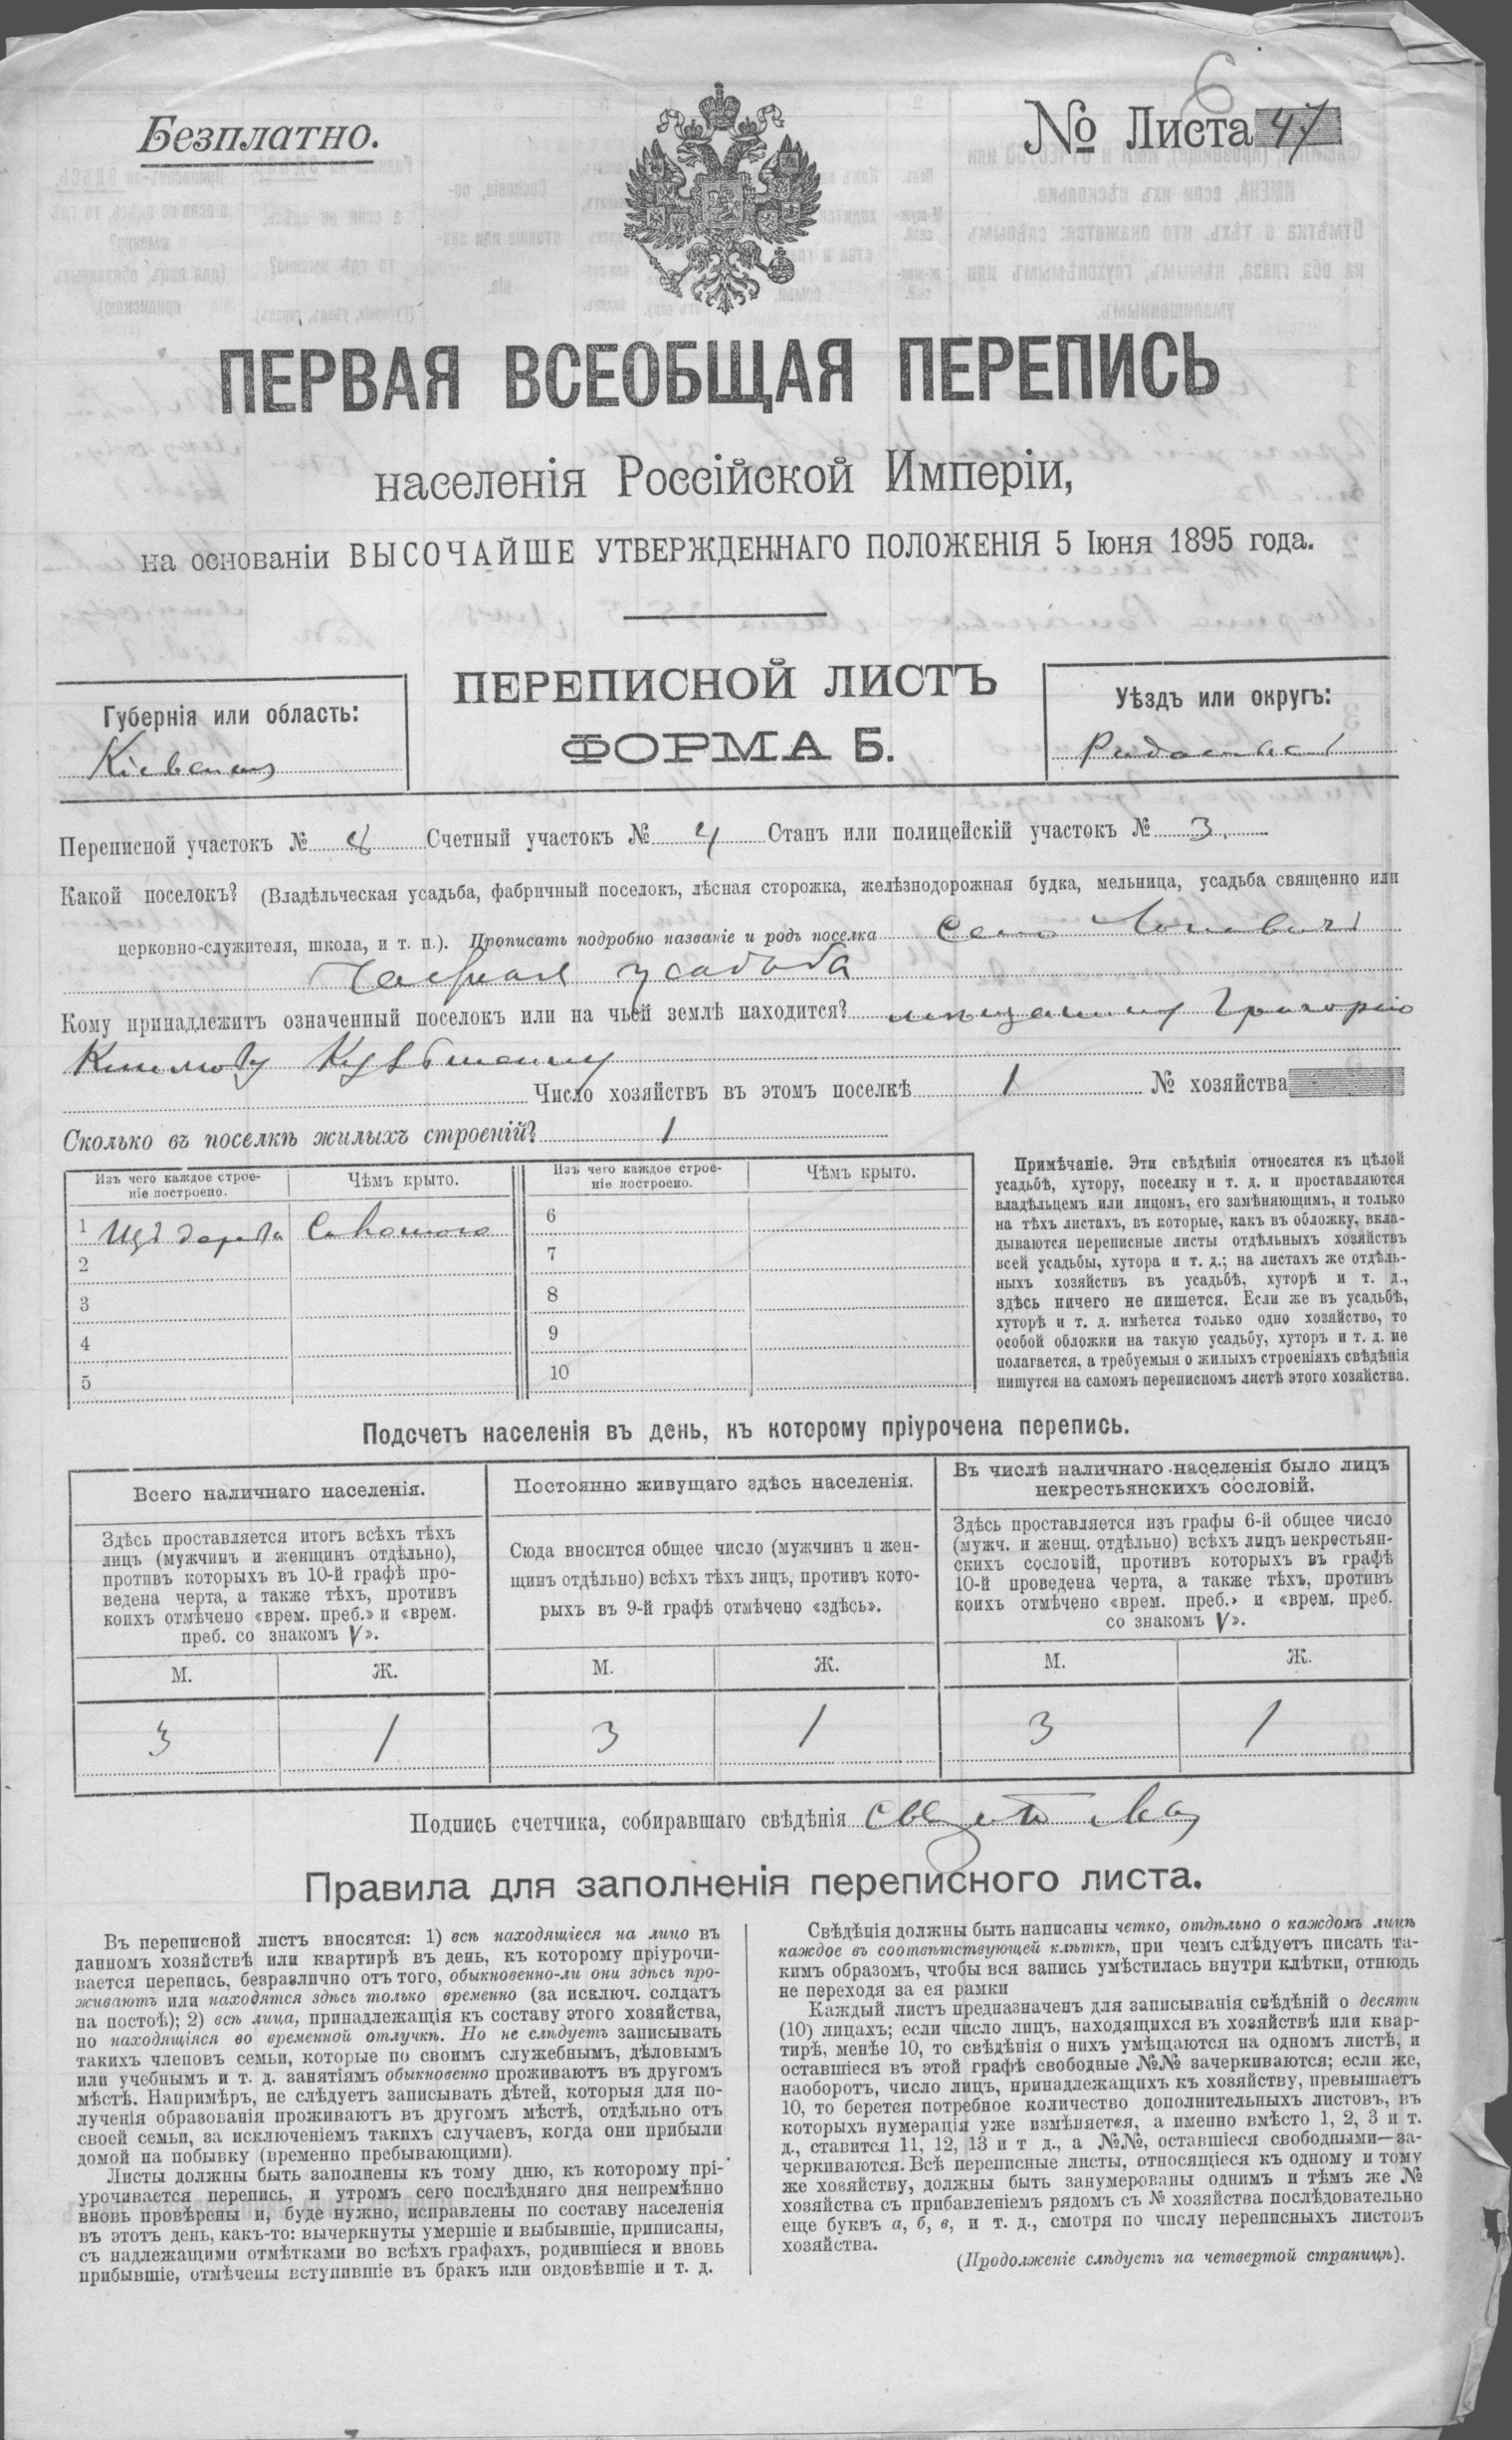 6
Безплатно.
№ Листа 47
ПЕРВАЯ ВСЕОБЩАЯ ПЕРЕПИСЬ
населенія Россійской Имперіи,
на основаніи ВЫСОЧАЙШЕ УТВЕРЖДЕННАГО ПОЛОЖЕНІЯ 5 Іюня 1895 года.
Губернія или область:
Кіевская
ПЕРЕПИСНОЙ ЛИСТЪ
ФОРМА Б.
Уѣздъ или округъ:
Переписной участокъ № 8 Счетный участокъ № 4 Станъ или полицейскій участокъ № 3.
Какой поселокъ? (Владѣльческая усадьба, фабричный поселокъ, лѣсная сторожка, желѣзнодорожная будка, мельница, усадьба священно или
церковно-служителя, школа, и т. п.). Прописать подробно названіе и родъ поселка Село
усадьба
Кому принадлежитъ означенный поселокъ или на чьей землѣ находится? мѣщанину Григорію
Число хозяйствъ въ этомъ поселкѣ 1 № хозяйства
Сколько въ поселкѣ жилыхъ строеній? 1
Изъ чего каждое строе-
ніе построено.
Чѣмъ крыто.
Изъ чего каждое строе-
ніе построено.
Чѣмъ крыто.
1 Изъ дерева Соломою
2
3
4
5
6
7
8
9
10
Примѣчаніе. Эти свѣдѣнія относятся къ цѣлой
усадьбѣ, хутору, поселку и т. д. и проставляются
владѣльцемъ или лицомъ, его замѣняющимъ, и только
на тѣхъ листахъ, въ которые, какъ въ обложку, вкла-
дываются переписные листы отдѣльныхъ хозяйствъ
всей усадьбы, хутора и т. д.; на листахъ же отдѣль-
ныхъ хозяйствъ въ усадьбѣ, хуторѣ и т. д.,
здѣсь ничего не пишется. Если же въ усадьбѣ,
хуторѣ и т. д. имѣется только одно хозяйство, то
особой обложки на такую усадьбу, хуторъ и т. д. не
полагается, а требуемыя о жилыхъ строеніяхъ свѣдѣнія
пишутся на самомъ переписномъ листѣ этого хозяйства.
Подсчетъ населенія въ день, къ которому пріурочена перепись.
Всего наличнаго населенія.
Здѣсь проставляется итогъ всѣхъ тѣхъ
лицъ (мужчинъ и женщинъ отдѣльно),
противъ которыхъ въ 10-й графѣ про-
ведена черта, а также тѣхъ, противъ
коихъ отмѣчено «врем. преб.» и «врем.
преб. со знакомъ V».
Постоянно живущаго здѣсь населенія.
Сюда вносится общее число (мужчинъ и жен-
щинъ отдѣльно) всѣхъ тѣхъ лицъ, противъ кото-
рыхъ въ 9-й графѣ отмѣчено «здѣсь».
Въ числѣ наличнаго населенія было лицъ
некрестьянскихъ сословій.
Здѣсь проставляется изъ графы 6-й общее число
(мужч. и женщ. отдѣльно) всѣхъ лицъ некрестьян-
скихъ сословій, противъ которыхъ въ графѣ
10-й проведена черта, а также тѣхъ, противъ
коихъ отмѣчено «врем. преб.» и «врем. преб.
со знакомъ V».
М. Ж. М. Ж. М. Ж.
3 1 3 1 3 1
Подпись счетчика, собиравшаго свѣдѣнія
Правила для заполненія переписного листа.
Въ переписной листъ вносятся: 1) всѣ находящіеся на лицо въ
данномъ хозяйствѣ или квартирѣ въ день, къ которому пріурочи-
вается перепись, безразлично отъ того, обыкновенно-ли они здѣсь про-
живаютъ или находятся здѣсь только временно (за исключ. солдатъ
на постоѣ); 2) всѣ лица, принадлежащія къ составу этого хозяйства,
но находящіяся во временной отлучкѣ. Но не слѣдуетъ записывать
такихъ членовъ семьи, которые по своимъ служебнымъ, дѣловымъ
или учебнымъ и т. д. занятіямъ обыкновенно проживаютъ въ другомъ
мѣстѣ. Напримѣръ, не слѣдуетъ записывать дѣтей, которыя для по-
лученія образованія проживаютъ въ другомъ мѣстѣ, отдѣльно отъ
своей семьи, за исключеніемъ такихъ случаевъ, когда они прибыли
домой на побывку (временно пребывающими).
Листы должны быть заполнены къ тому дню, къ которому прі-
урочивается перепись, и утромъ сего послѣдняго дня непремѣнно
вновь провѣрены и, буде нужно, исправлены по составу населенія
въ этотъ день, какъ-то: вычеркнуты умершіе и выбывшіе, приписаны,
съ надлежащими отмѣтками во всѣхъ графахъ, родившіеся и вновь
прибывшіе, отмѣчены вступившіе въ бракъ или овдовѣвшіе и т. д.
Свѣдѣнія должны быть написаны четко, отдѣльно о каждомъ лицѣ
каждое въ соотвѣтствующей клѣткѣ, при чемъ слѣдуетъ писать та-
кимъ образомъ, чтобы вся запись умѣстилась внутри клѣтки, отнюдь
не переходя за ея рамки
Каждый листъ предназначенъ для записыванія свѣдѣній о десяти
(10) лицахъ; если число лицъ, находящихся въ хозяйствѣ или квар-
тирѣ, менѣе 10, то свѣдѣнія о нихъ умѣщаются на одномъ листѣ, и
оставшіеся въ этой графѣ свободные №№ зачеркиваются; если же,
наоборотъ, число лицъ, принадлежащихъ къ хозяйству, превышаетъ
10, то берется потребное количество дополнительныхъ листовъ, въ
которыхъ нумерація уже измѣняется, а именно вмѣсто 1, 2, 3 и т.
д., ставится 11, 12, 13 и т д., а №№, оставшіеся свободными—за-
черкиваются. Всѣ переписные листы, относящіеся къ одному и тому
же хозяйству, должны быть занумерованы однимъ и тѣмъ же №
хозяйства съ прибавленіемъ рядомъ съ № хозяйства послѣдовательно
еще буквъ а, б, в, и т. д., смотря по числу переписныхъ листовъ
хозяйства.
(Продолженіе слѣдуетъ на четвертой страницѣ).